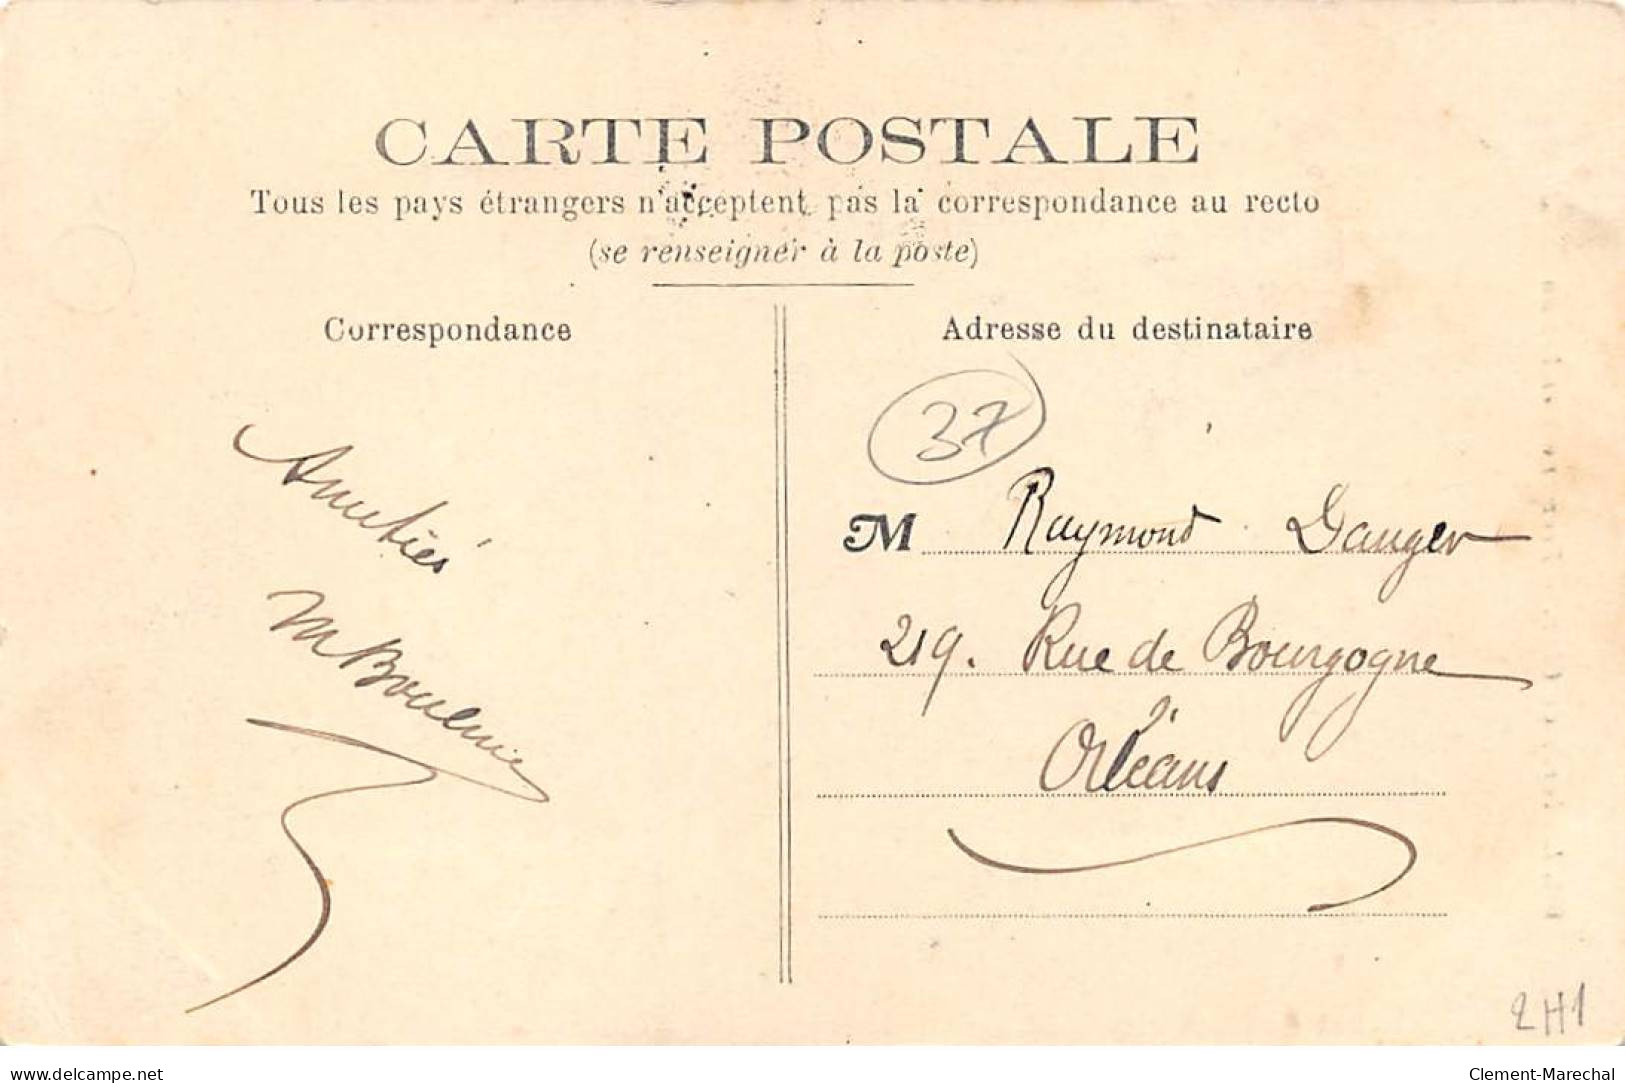 CARTE POSTALE
Tous les pays étrangers n'acceptent pas la correspondance au recto
(se renseigner à la poste)
Correspondance
Adresse du destinataire
37
Amitiés
M
M Raymond Danger
219. Rue de Bourgogne
Orléans
2H1
www.delcampe.net
Clement-Marechal